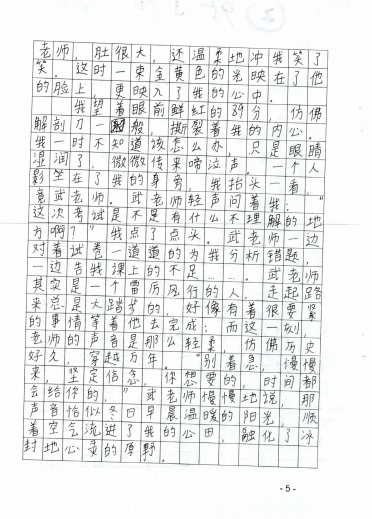 老师，肚很大，还温柔地冲我笑了
笑。这时一束金黄色的光映在了他
的脸上，更映入了我的心中。
我望着眼前鲜红的89分，仿佛
解剖刀一般，撕裂着我的内心。
我一时不知道该怎么办，只是眼睛
湿润了，微微传来啼泣声。一个人
影坐在了我的身旁，我抬头一看，
竟武老师。武老师轻声问着我：“
这次考试是不是有什么不理解的地
方啊？”我点了点头。武老师一边
对着试卷一道道的为我分析错题，
一边告我课上的不足……。武老师
其实是一个雷厉风行的人，走起路
来总是大踏步的，好像有着很要紧
的事情等着他去完成；而这一刻，
老师的声音是那么轻柔，仿佛历史
好久，穿越万年。“别着急，慢慢
来，坚定信念，你想要的，时间都
会给你的，”武老师慢慢地说，那
声音恰似冬日早晨温暖的阳光，顺
着空气流进了我的心田，融化了冰
封地心灵的原野。
-5-